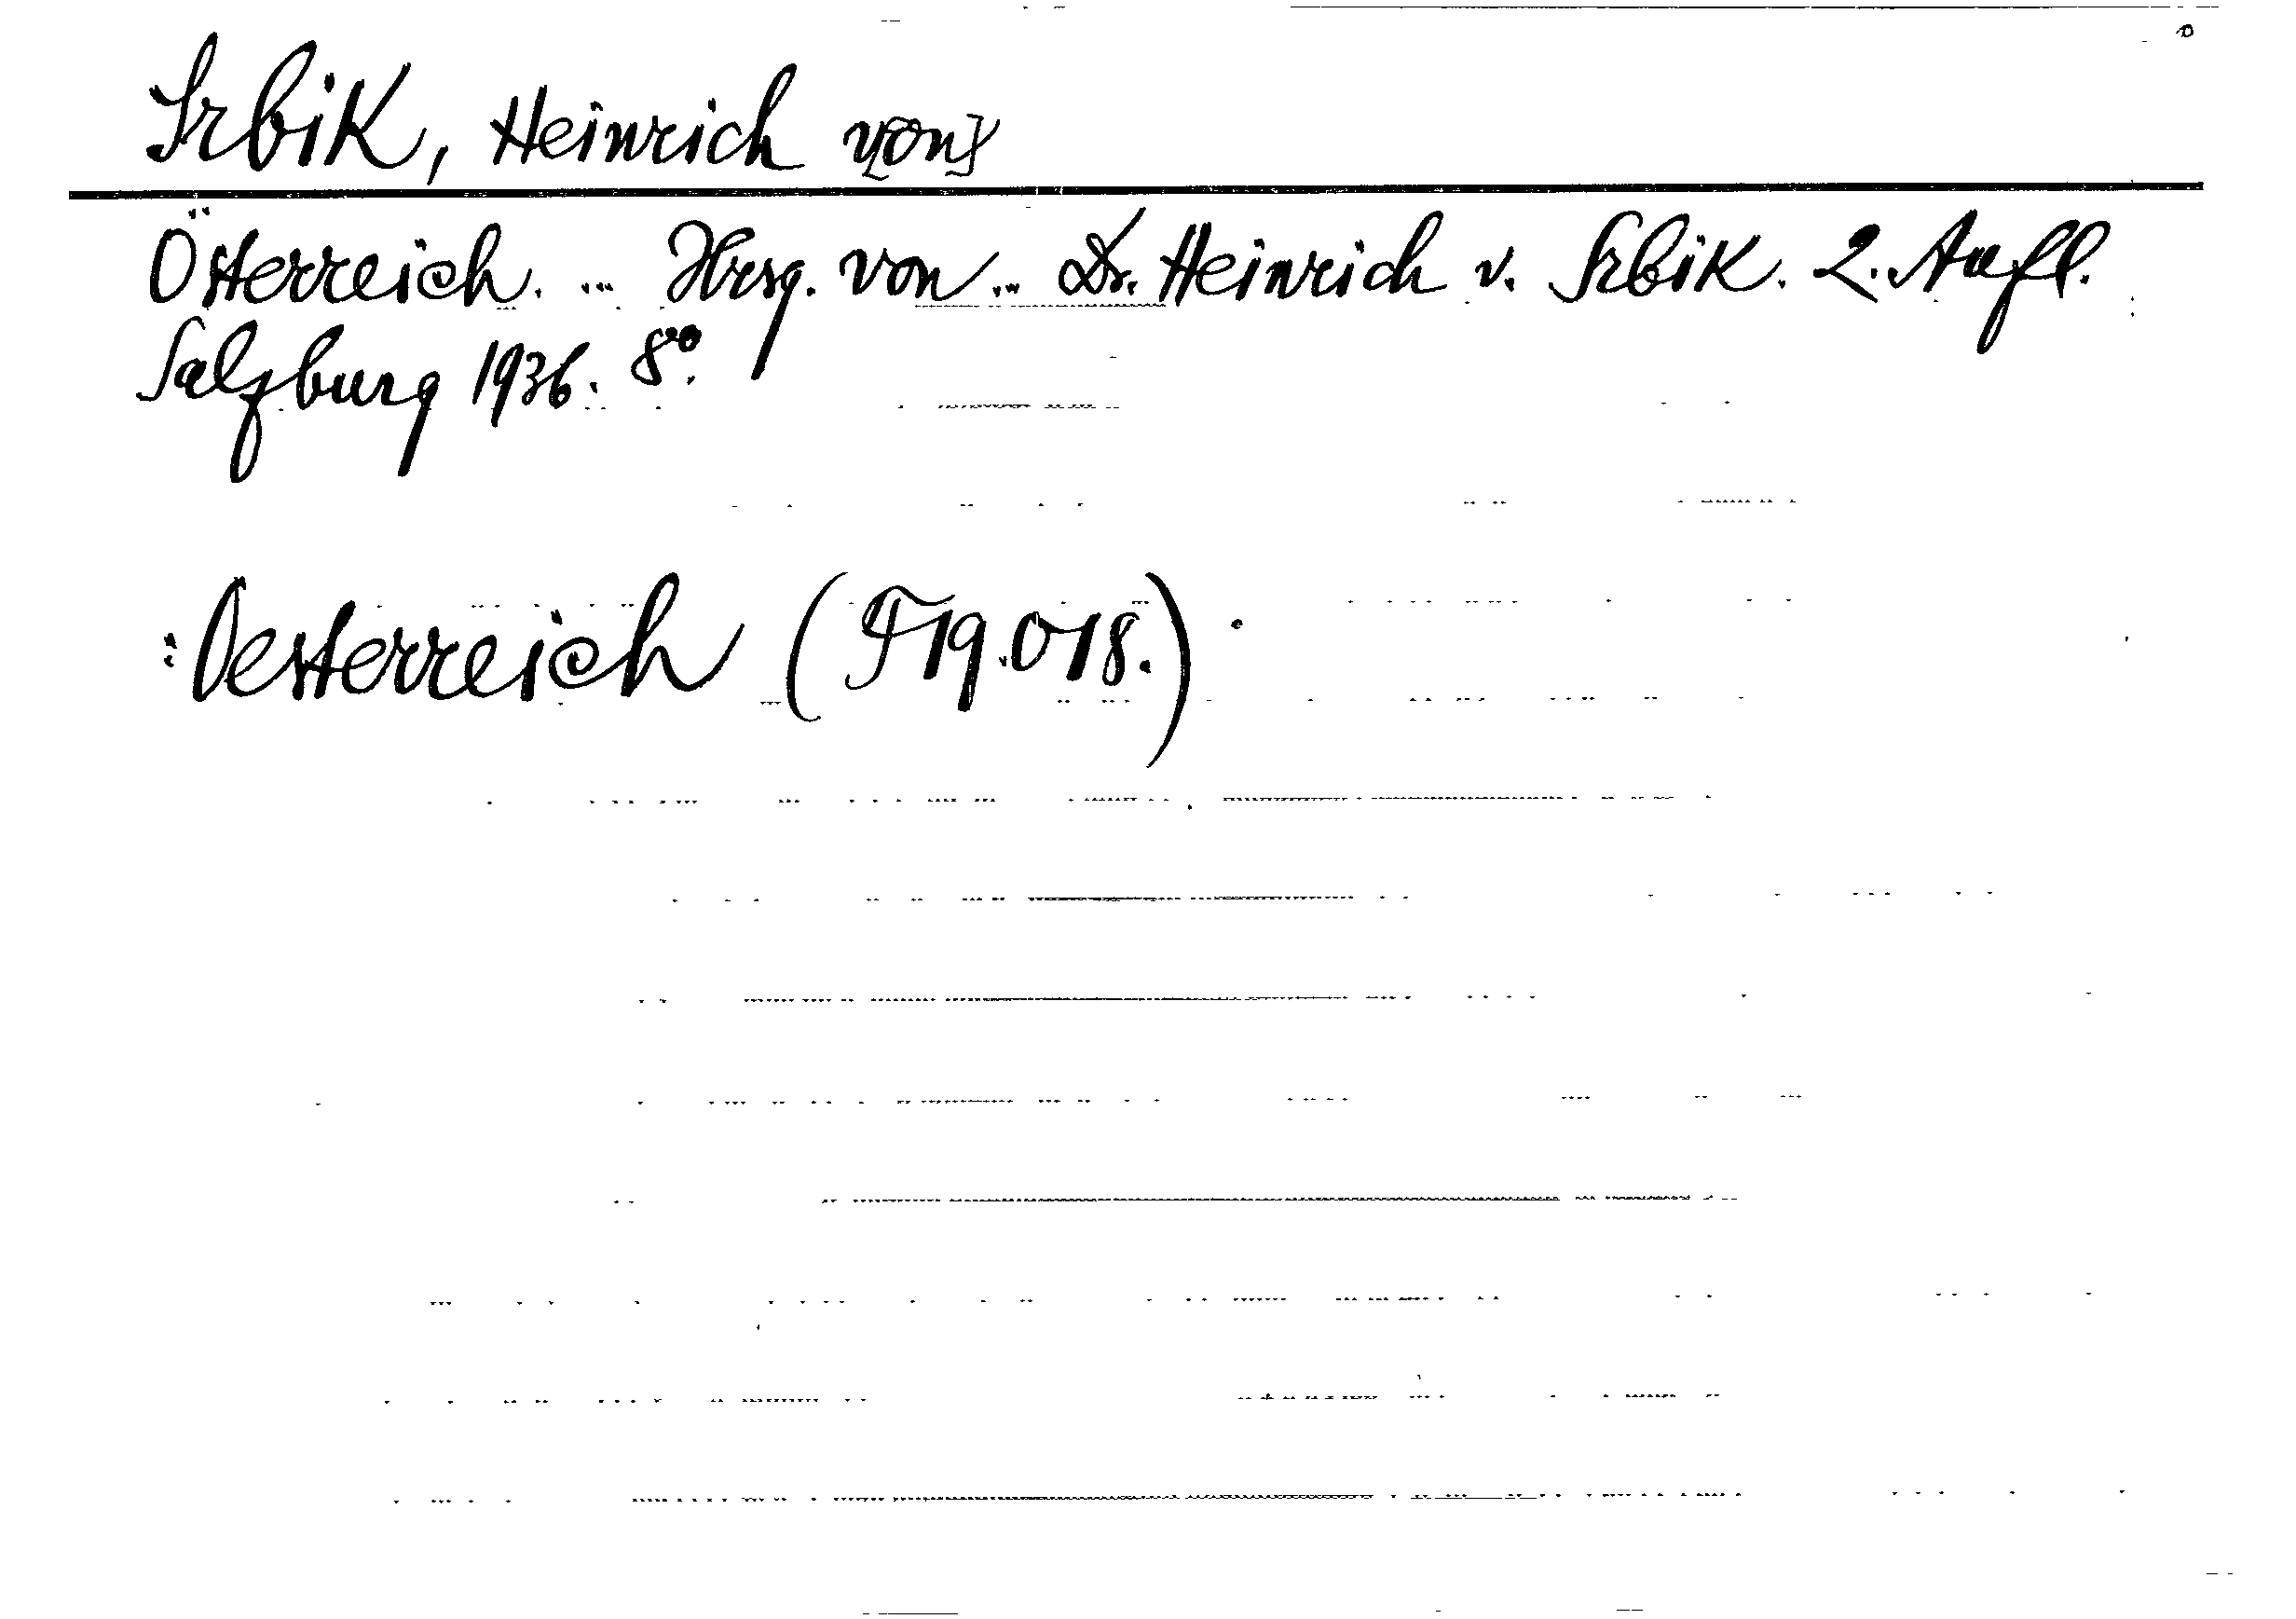 Srbik, Heinrich v[on]
Österreich. ... Hrsg. von ... Dr. Heinrich v. Srbik. 2. Aufl.
Salzburg 1936. 8°.
: Oesterreich (F 19.018.) .